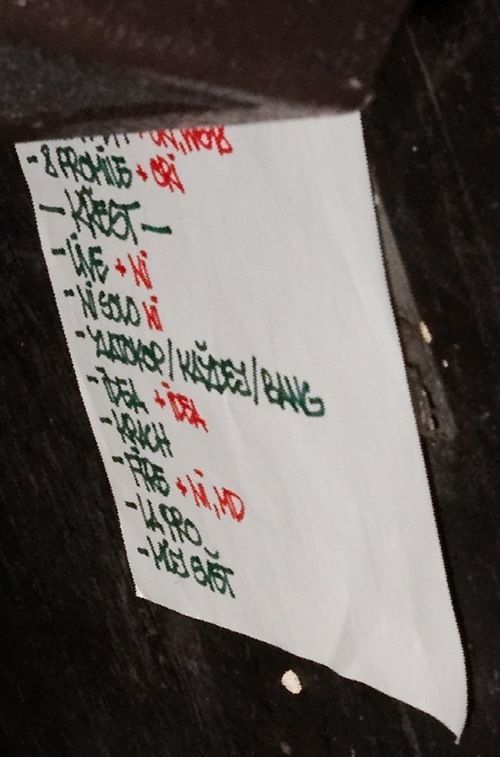 - 8 PROMILE + ORI
— KŘEST —
- LIVE + NI
- NI SOLO NI
- ZLATOKOP / KAŽDEJ / BANG
- IDEA + IDEA
- KRACH
- FIRE + NI, MD
- LA PRO
- MŮJ SVĚT